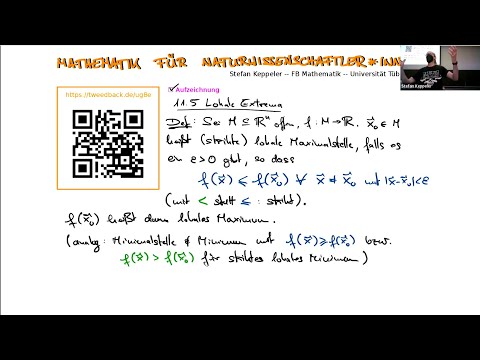 MATHEMATIK FÜR NATURWISSENSCHAFTLER*INN
Stefan Keppeler -- FB Mathematik -- Universität Tüb
https://tweedback.de/ug8e
✓Aufzeichnung
11.5 Lokale Extrema
Def.: Sei M ⊆ ℝⁿ offen, f: M→ℝ. x⃗₀ ∈ M
heißt (strikte) lokale Maximalstelle, falls es
ein ε>0 gibt, so dass
f(x⃗) ≤ f(x⃗₀) ∀ x⃗ ≠ x⃗₀ mit |x⃗-x⃗₀|<ε
(mit < statt ≤ : strikt).
f(x⃗₀) heißt dann lokales Maximum.
(analog: Minimalstelle & Minimum mit f(x⃗) ≥ f(x⃗₀) bzw.
f(x⃗) > f(x⃗₀) für striktes lokales Minimum)
Stefan Keppeler